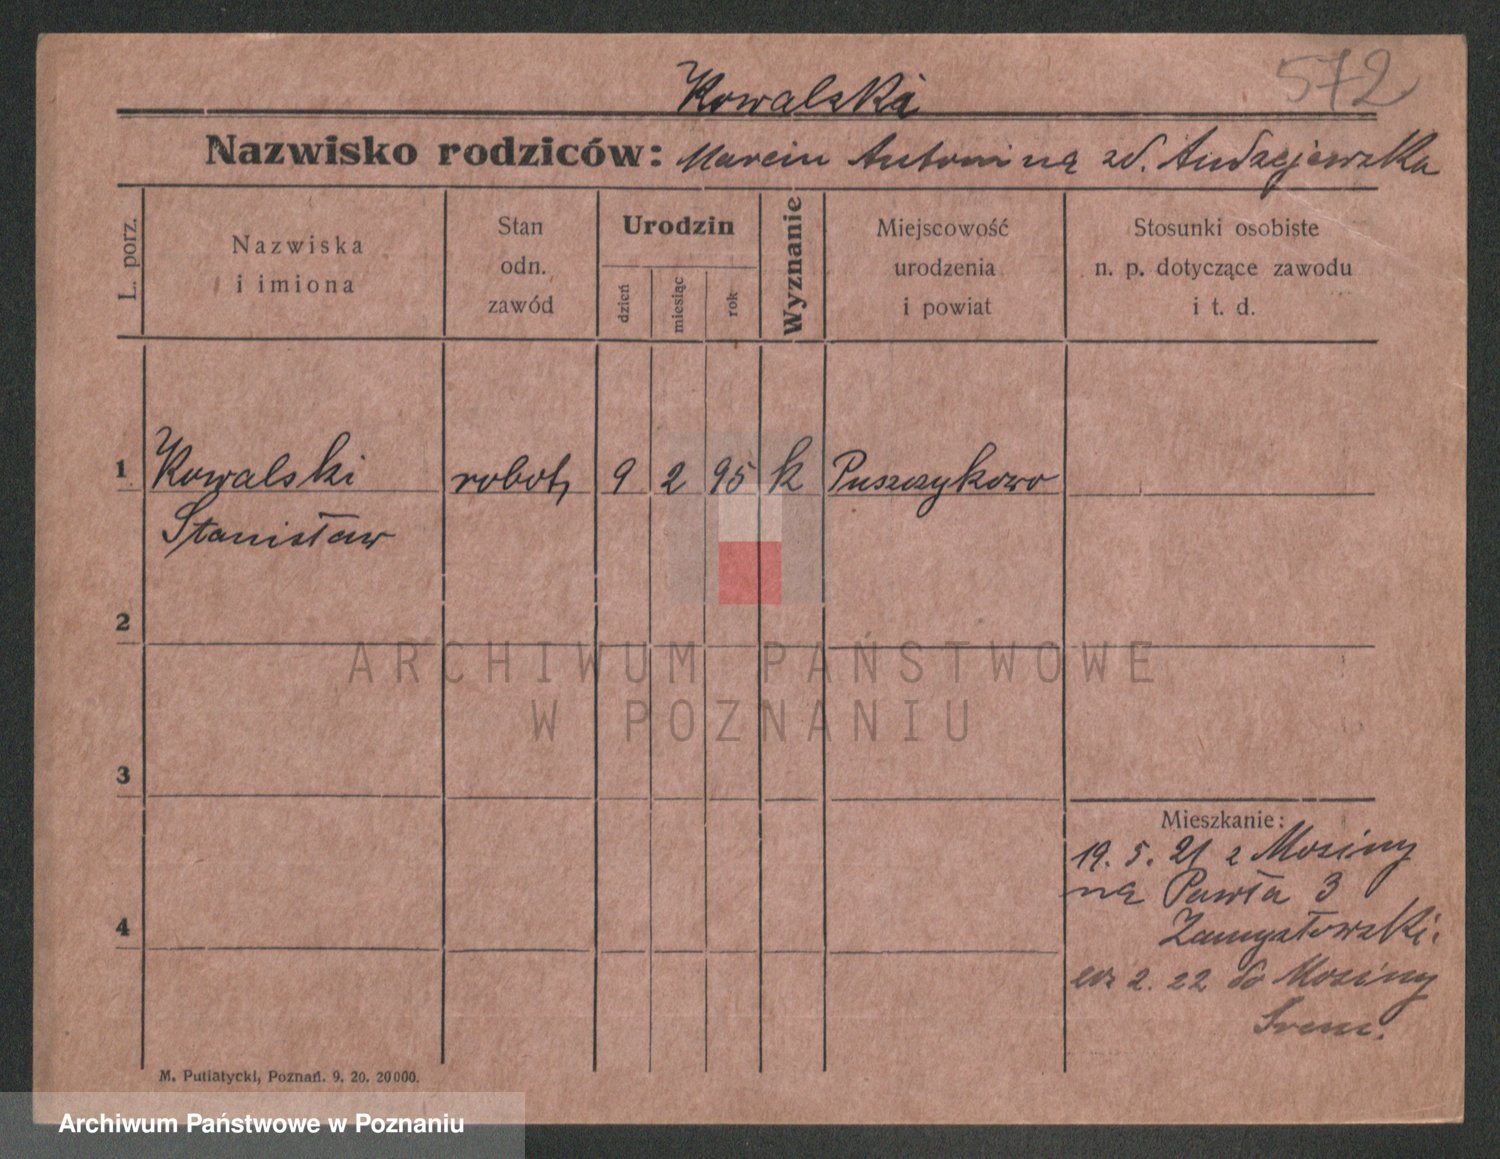 572
Kowalski
Nazwisko rodziców: Marcin Antonina zd. Andrzejewska
L. porz.
Nazwiska
i imiona
Stan
odn.
zawód
Urodzin
dzień
miesiąc
rok
Wyznanie
Miejscowość
urodzenia
i powiat
Stosunki osobiste
n. p. dotyczące zawodu
i t. d.
1 Kowalski robot. 9 2 95 k Puszczykowo
Stanisław
2
3
4
Mieszkanie:
19. 5. 21 z Mosiny
na Pawła 3
2. 22 do Mosiny
Śrem.
M. Putiatycki, Poznań. 9. 20. 20000.
ARCHIWUM PAŃSTWOWE
W POZNANIU
Archiwum Państwowe w Poznaniu